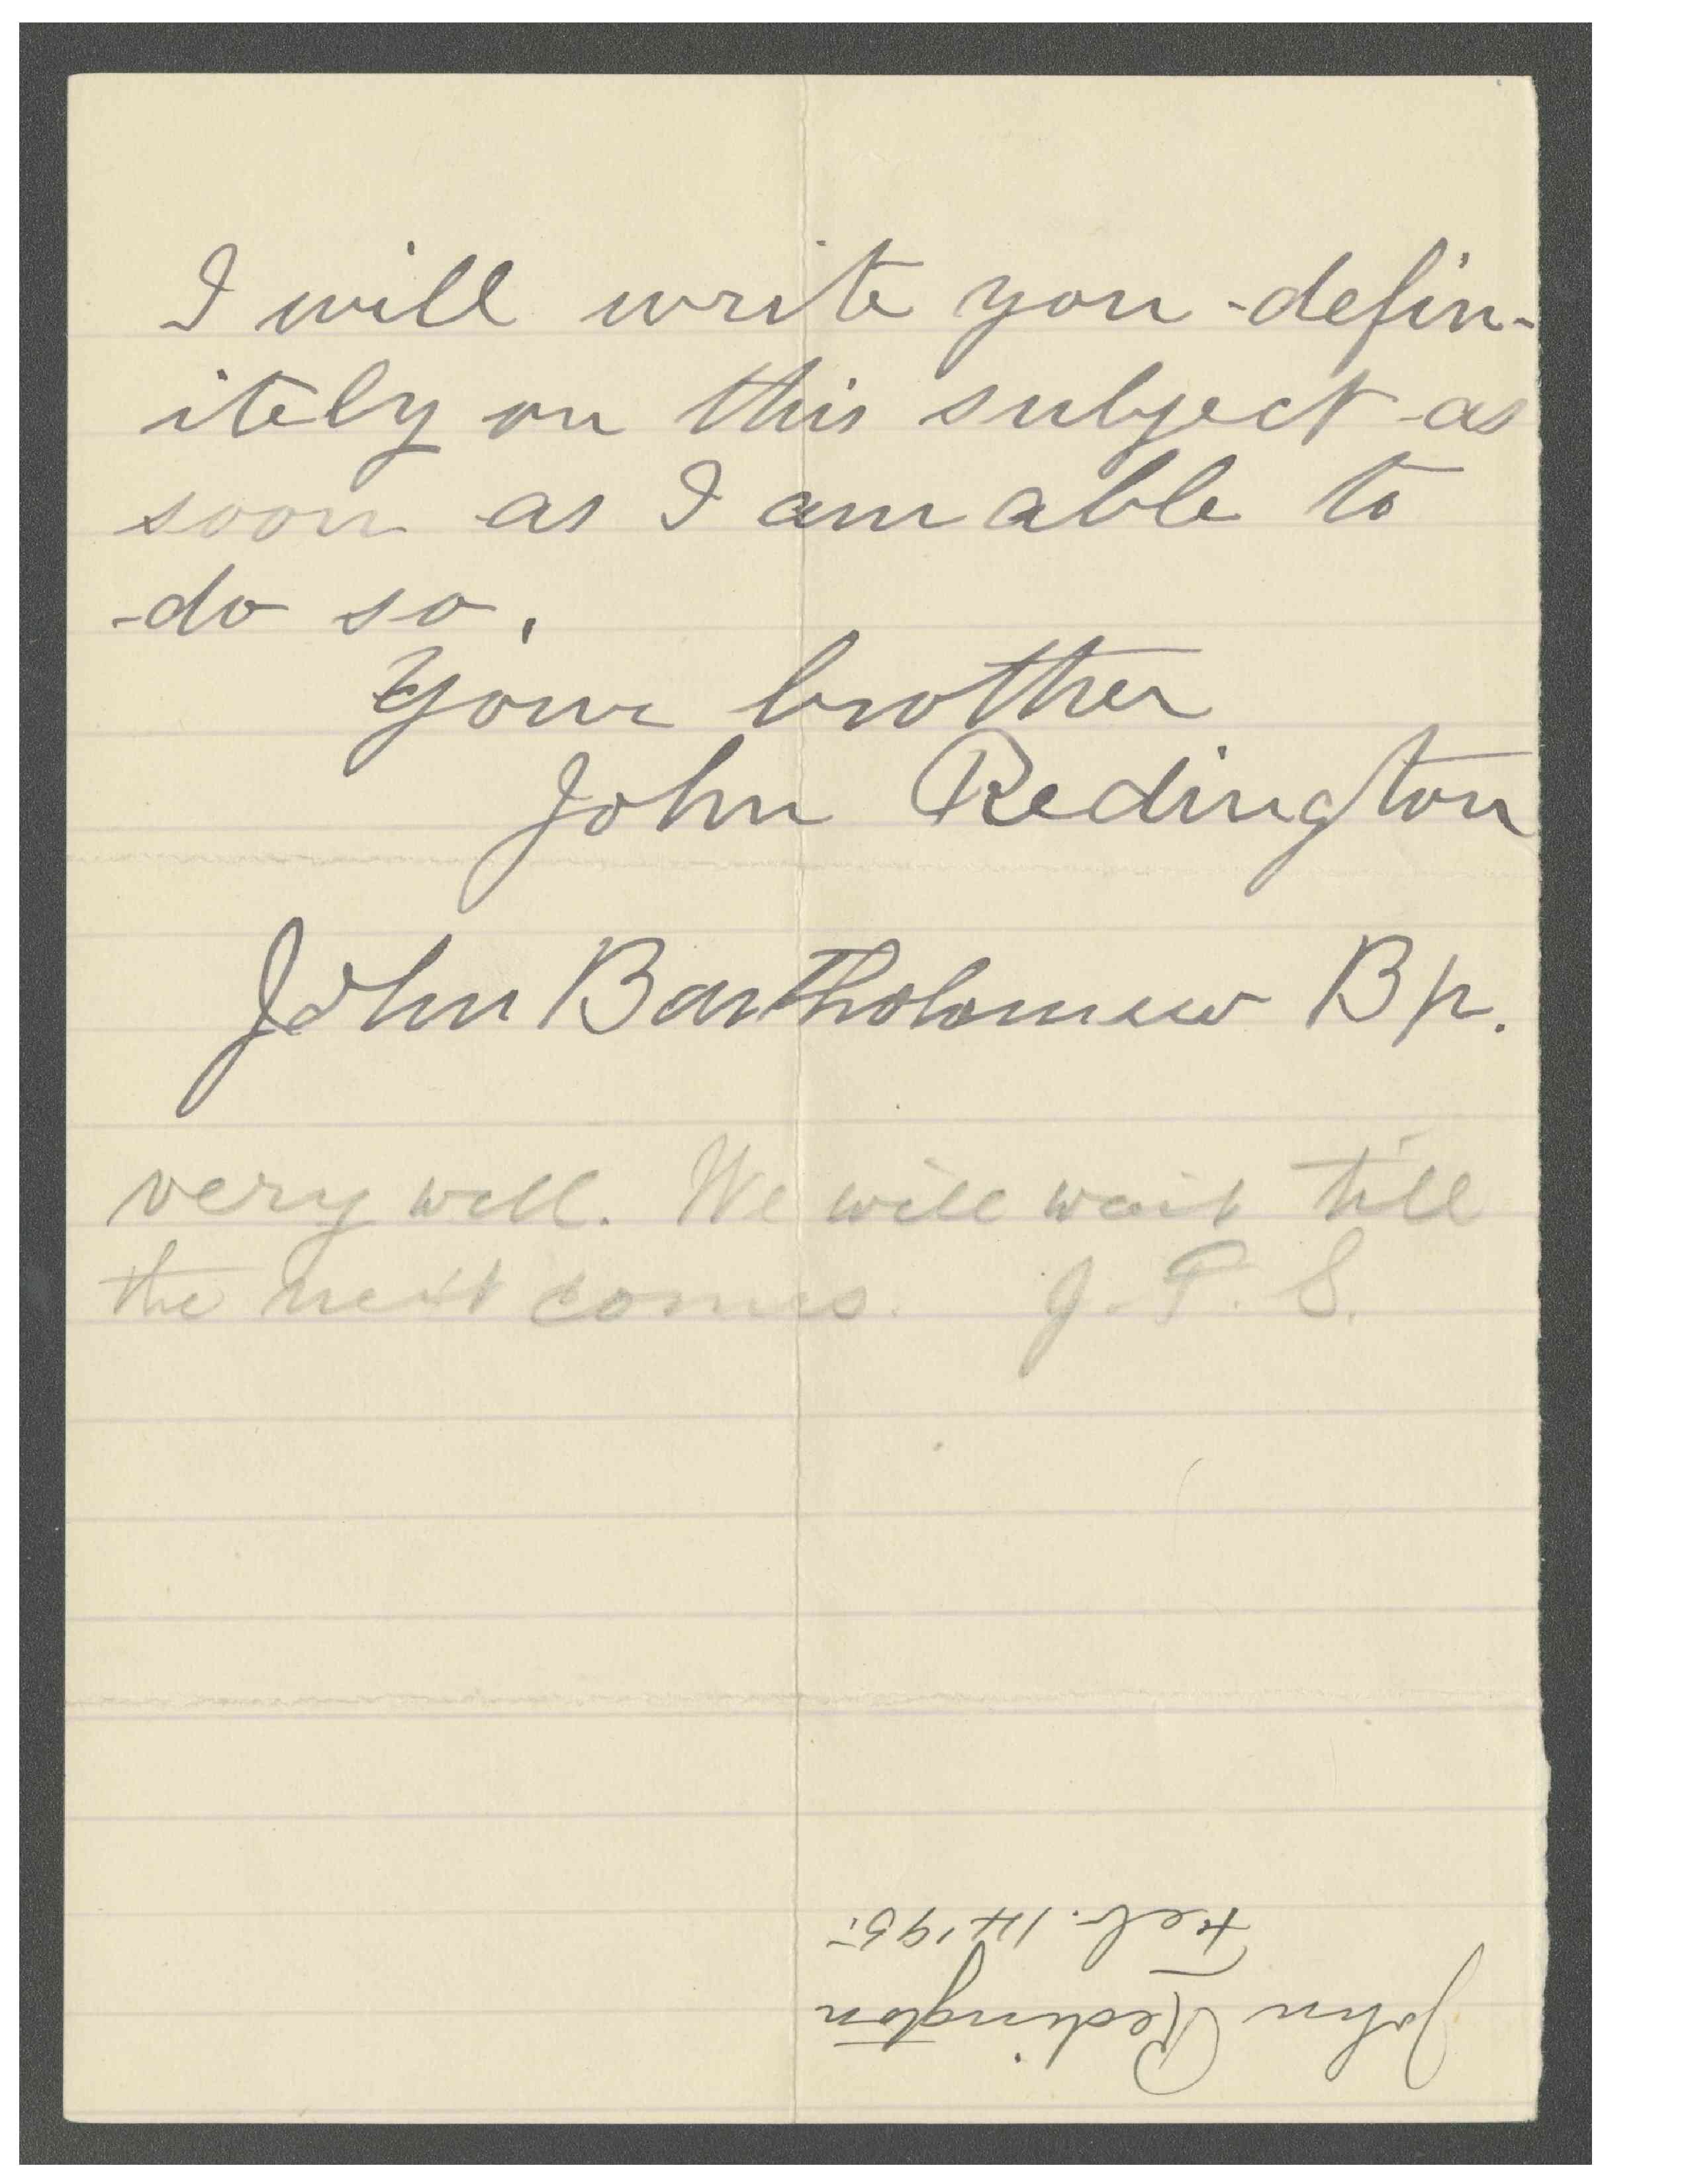 I will write you defin-
itely on this subject as
soon as I am able to
do so.
Your brother
John Redington
John Bartholomew Bp.
very well. We will wait till
the next comes. J. F. S.
John Redington
Feb. 14 '95